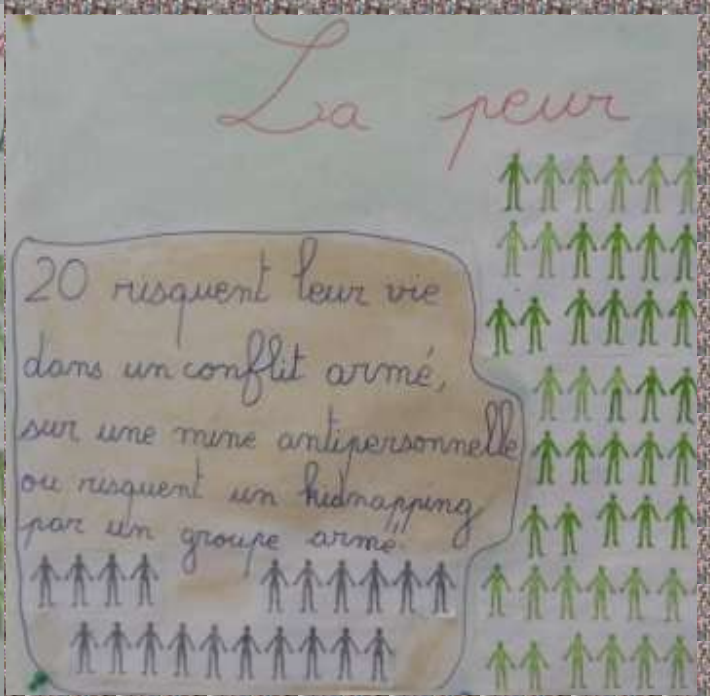 La peur
20 risquent leur vie
dans un conflit armé,
sur une mine antipersonnelle
ou risquent un kidnapping
par un groupe armé.